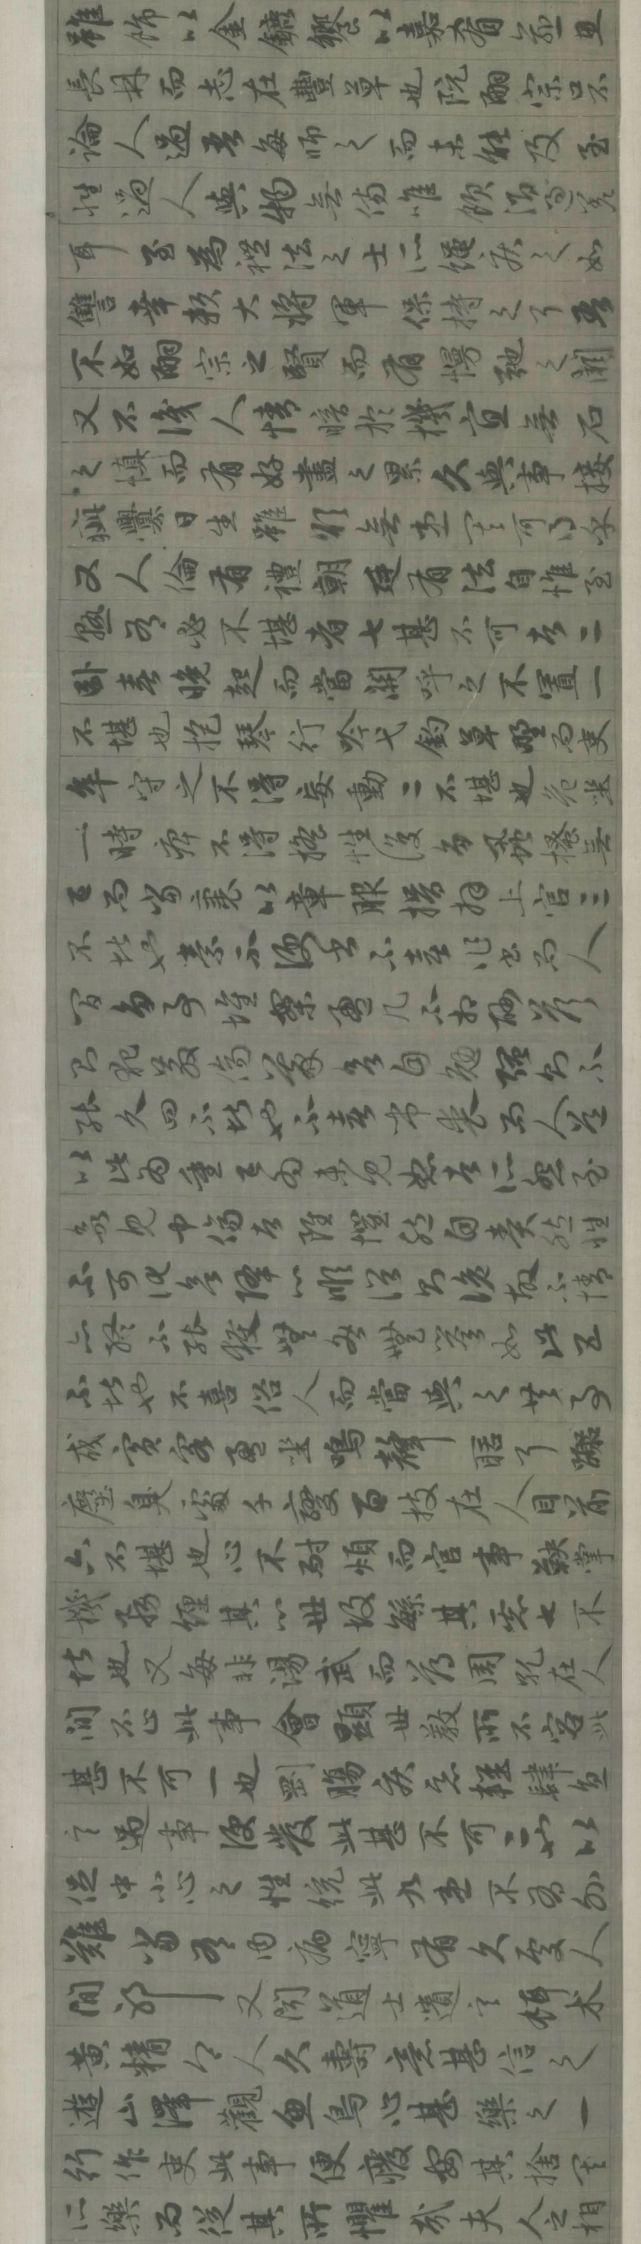 雖飾以金鑣饗以嘉肴逾思
長林而志在豐草也阮嗣宗口不
論人過吾每師之而未能及至
性過人與物無傷唯飲酒過差
耳至為禮法之士所繩疾之如
讎幸賴大將軍保持之耳吾
不如嗣宗之賢而有慢弛之闕
又不識人情暗於機宜無石
之慎而有好盡之累久與事接
疵釁日生雖欲無患其可得乎
又人倫有禮朝廷有法自惟至
熟有必不堪者七甚不可者二
臥喜晚起而當關呼之不置一
不堪也抱琴行吟弋釣草野而吏
卒守之不得妄動二不堪也危坐
一時痺不得搖性復多虱搔無
已而當裹以章服揖拜上官三
不堪也素不便書不喜作書而人
間多事堆案盈几不相酬答
則犯教傷義欲自勉強則不
能久四不堪也不喜弔喪而人道
以此為重已為未見恕者所怨至
欲見中傷者雖懼然自責然性
不可化欲降心順俗則詭故不情
亦終不能獲無咎無譽如此五
不堪也不喜俗人而當與之共事
或賓客盈坐鳴聲聒耳囂
塵臭處千變百技在人目前
六不堪也心不耐煩而官事鞅掌
機務纏其心世故繁其慮七不
堪也又每非湯武而薄周孔在人
間不止此事會顯世教所不容此
甚不可一也剛腸疾惡輕肆直
言遇事便發此甚不可二也以
促中小心之性統此九患不有外
難當有內病寧有久處人
間邪又聞道士遺言餌朮
黃精令人久壽意甚信之
遊山澤觀魚鳥心甚樂之一
行作吏此事便廢安其捨其
所樂而從其所懼哉夫人之相